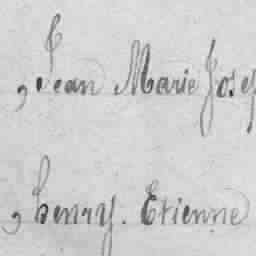 , Jean Marie Jose
, henry. Etienne